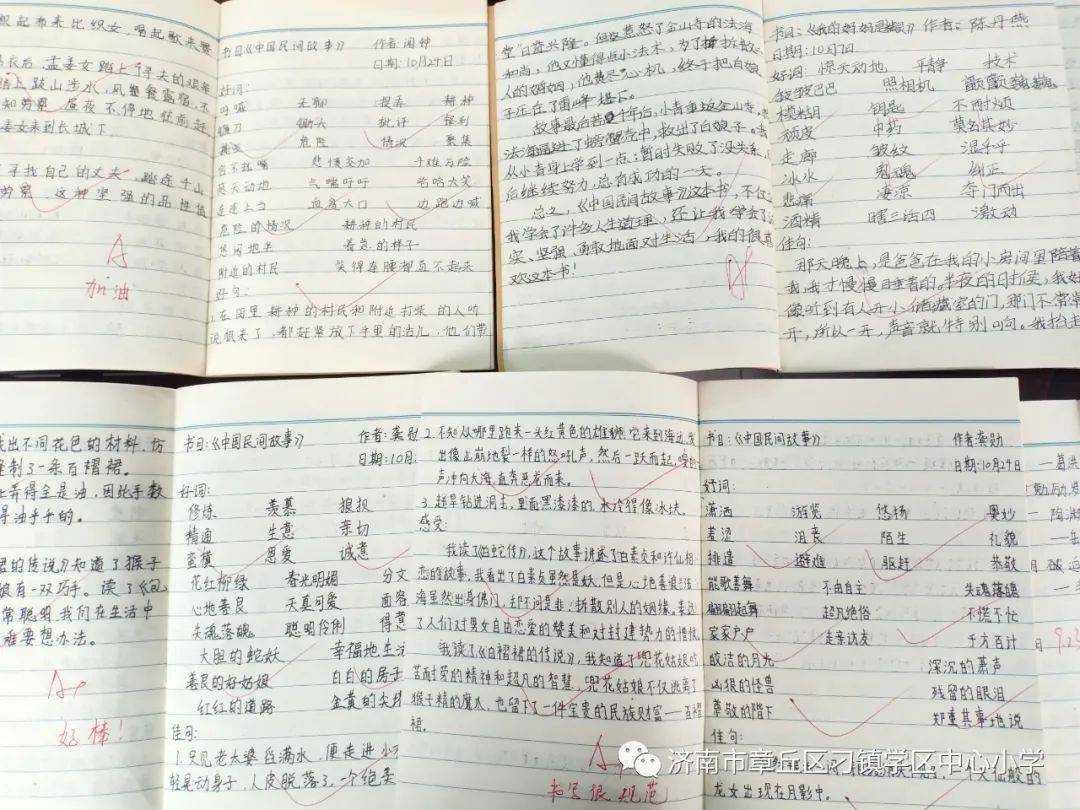 起布来比织女，唱起歌来赛
长后，孟姜女踏上了寻夫的艰辛
路上跋山涉水，风餐露宿，不
知劳累，昼夜不停地往前赶
姜女来到长城下。
寻找自己的丈夫，踏遍千山
劳累，这种坚强的品性值
A
加油
书目《中国民间故事》 作者闻钟
日期:10月29日
好词:
无聊 捉弄 耕种
镰刀 锄头 批评 犀利
危险 情况 聚集
合不拢嘴 悲愤交加 千难万险
惊天动地 气喘吁吁 哈哈大笑
连连上当 血盆大口 边跑边喊
危险的情况 耕种的村民
悠闲地坐 着急的样子
附近的村民 笑得连腰都直不起来
好句:
1.在田里耕种的村民和附近打柴的人听
说狼来了，都赶紧放下手里的活儿，他们带
堂"日益兴隆。但效惹怒了金山寺的法海
和尚，他又懂得点小法术，为了拆散
人的婚姻，他费尽心机，终于把白娘
子压在了雷峰塔下。
故事最后若干年后，小青重返金山寺，
法海逼进了螃蟹壳中，救出了白娘子。我
从小青身上学到一点:暂时失败了没关系，
后继续努力，总有成功的一天。
总之，《中国民间故事》这本书，不仅
我学会了许多人生道理，还让我学会了
实、坚强、勇敢地面对生活，我的很喜
欢这本书!
书目:《我的妈妈是精灵》 作者:陈丹燕
日期:10月7日
好词: 惊天动地 平静 技术
皱皱巴巴 照相机 颤颤巍巍
模糊 钥匙 不耐烦
顽皮 中药 莫名其妙
走廊 皱纹 湿乎乎
冰水 鬼魂 纠正
悲痛 凄凉 夺门而出
酒精 瞎三话四 激动
佳句:
那天晚上，是爸爸在我的小房间里陪着
我，我才慢慢睡着的。半夜的时候，我好
像听到有人开小储藏室的门，那门不常
开，所以一开，声音就特别响。我抬
出不同花色的材料，仿
制了一条百褶裙。
弄得全是油，因此手数
得油乎乎的。
的传说》知道了猴子
有一双巧手。读了《包
常聪明，我们在生活中
难要想办法。
A
好棒!
书目:《中国民间故事》 作者:龚勋
日期:10月
好词:
修炼 羡慕 狼狈
精通 生意 亲切
蛮横 恩爱 诚意
花红柳绿 春光明媚 分文
心地善良 天真可爱
失魂落魄 聪明伶俐 得意
大胆的蛇妖 幸福地生活
善良的好姑娘 白白的房子
红红的道路 金黄的
佳句:
1.只见老太婆舀满水，便走进小
轻晃动身子，人皮脱落了，一个
2.不知从哪里跑来一头红黄色的雄狮，它来到海边，发
出像山崩地裂一样的怒吼声，然后一跃而起，
声冲向大海，直奔恶龙而来。
3.赶旱钻进洞去，里面黑漆漆的，水冷得像冰块。
感受:
我读了《白蛇传》，这个故事讲述了白素贞和许仙相
恋的故事，我看出了白素贞虽然是妖，但是心地善良，法
海虽然出身佛门，却不问是非，拆散别人的姻缘，表达
了人们对男女自由恋爱的赞美和对封建势力的憎恨。
我读了《白褶裙的传说》，我知道了兜花姑娘吃
苦耐劳的精神和超凡的智慧。兜花姑娘不仅逃离了
猴子精的魔爪，也留下了一件宝贵的民族财富——百褶
裙。
A
书写很规范
书目:《中国民间故事》 作者龚勋
日期10月29日
好词:
潇洒 游览 悠扬 奥妙
羞涩 沮丧 陌生 礼貌
排遣 避难 驱赶 恭敬
能歌善舞 不由自主 失魂落魄
翩翩起舞 超凡绝俗 不慌不忙
家家户户 走亲访友 千方百计
皎洁的月光 深沉的箫声
凶狠的怪兽 残留的眼泪
尊敬的陛下 郑重其事地说
佳句:
龙女出现在月影中。
济南市章丘区刁镇学区中心小学